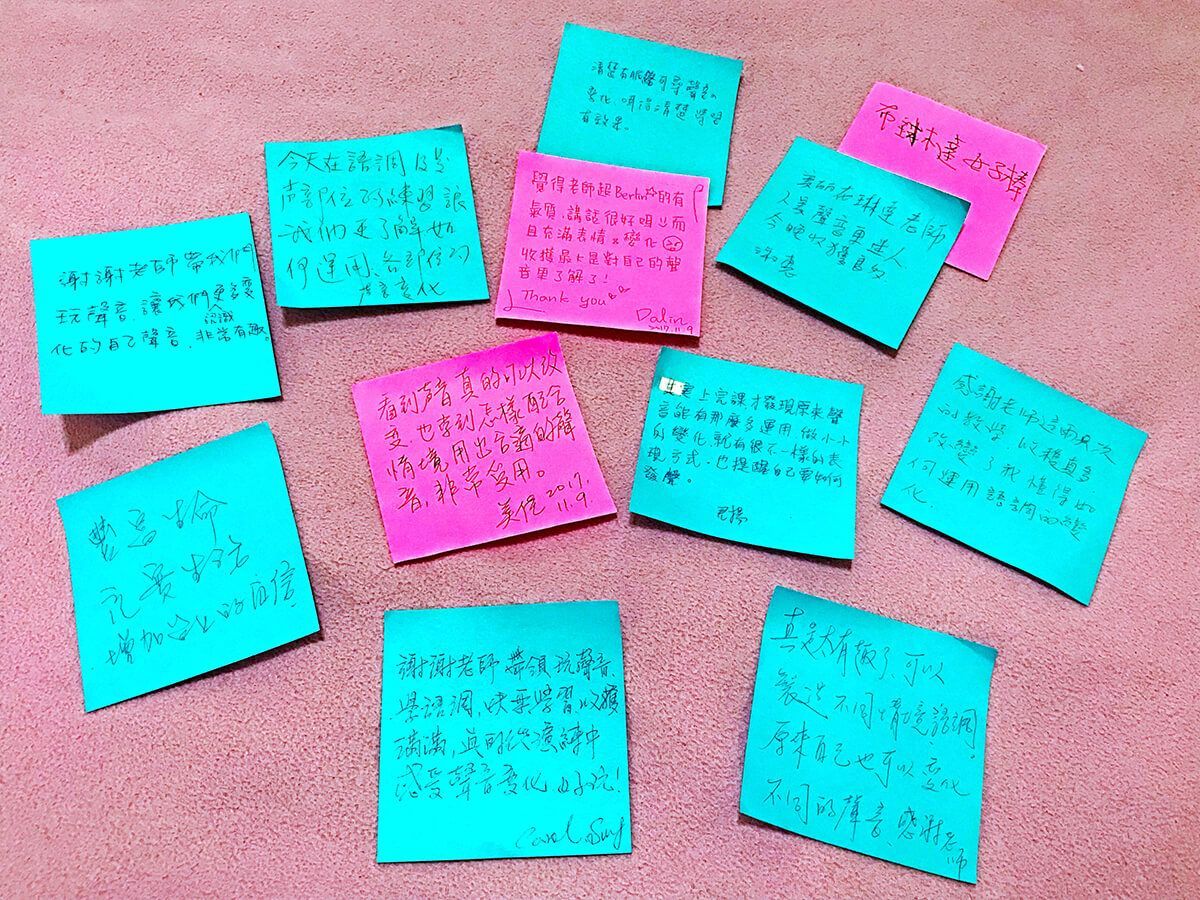 清楚有脈絡可尋聲音
變化,唱得清楚學習
有效果。
布辣木達女子棒
今天在語調及
声音部位的練習讓
我們更了解如
何運用、各部位的
声音變化
覺得老師超Berlin的有
氣質,講話很好唱而
且充滿表情&變化
收獲最大是對自己的聲
音更了解了!
Thank you
Dalin
2017.11.9
美丽在琳達老師
人美聲音更迷人
今晚收獲良多
謝謝老師帶我們
玩聲音,讓我們更認識變
化的自己聲音,非常有趣。
看到声音真的可以改
變,也學到怎樣配合
情境用出合適的聲
音,非常受用。
美侃 2017.
11.9.
上完課才發現原來聲
音能有那麼多運用,做小小
的變化,就有很不一樣的表
現方式,也提醒自己要如何
發聲。
君揚
感謝老師這兩次
的教學,收穫真多
改變了我懂得如
何運用語調的變
化.
豐富生命
充實生活
增加台上的自信
謝謝老師帶領玩聲音、
學語調,快樂學習,收穫
滿滿,真的從演練中
感受聲音變化好玩!
真是太有趣了,可以
製造不同情境語調,
原來自己也可以變化
不同的聲音,感謝老
師